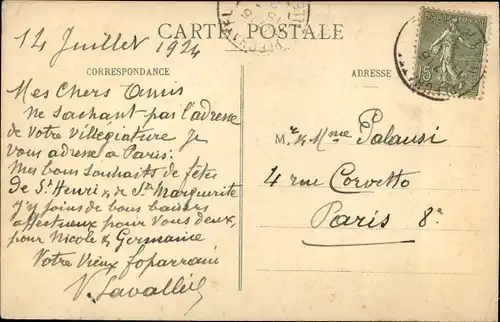 CARTE POSTALE
14 Juillet 1924
CORRESPONDANCE
ADRESSE
15
Mes Chers Amis
Ne Sachant pas l'adresse
de votre villegiature Je
vous adresse a Paris.
Mes bons souhaits de fêtes
de St Henri & de Ste Marguerite
J'y joins de bons baisers
affectueux pour Vous deux,
pour Nicole & Germaine
Votre Vieux
V. Lavallée
Mr & Mme Palausi
4 rue Corvetto
Paris 8e